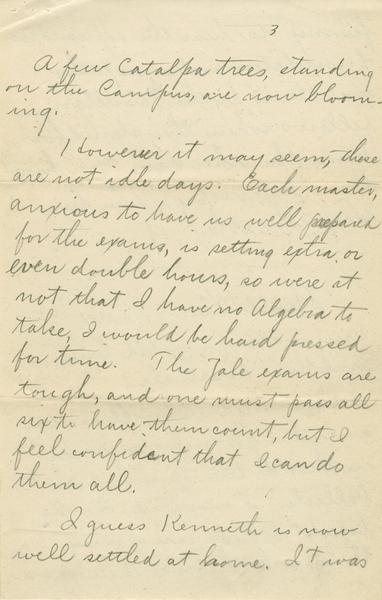 3
A few Catalpa trees, standing
on the Campus, are now bloom-
ing.
However it may seem, these
are not idle days. Each master,
anxious to have us well prepared
for the exams, is setting extra or
even double hours, so were it
not that I have no Algebra to
take, I would be hard pressed
for time. The Yale exams are
tough, and one must pass all
six to have them count, but I
feel confident that I can do
them all.
I guess Kenneth is now
well settled at home. It was